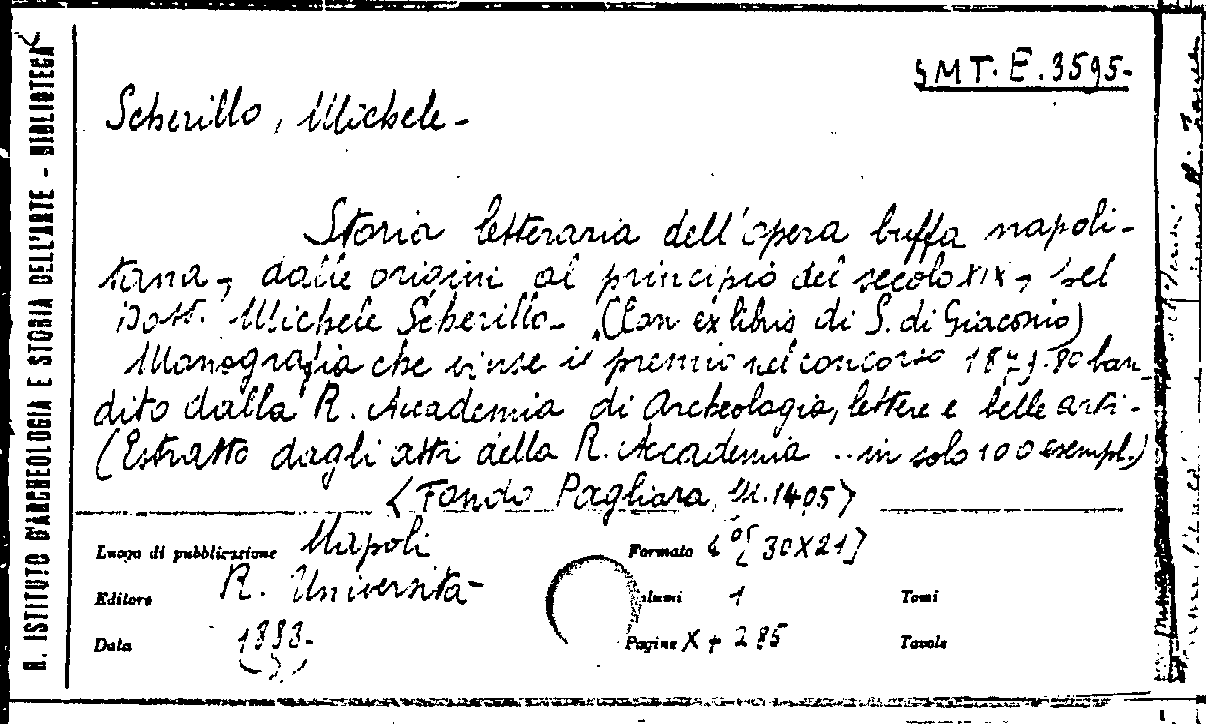 R. ISTITUTO D'ARCHEOLOGIA E STORIA DELL'ARTE - BIBLIOTECA
SMT. E. 3595-
Scherillo, Michele -
Storia letteraria dell'opera buffa napoli-
tana, dalle origini al principio del secolo XIX, del
Dott. Michele Scherillo - (Con ex libris di S. di Giacomo)
Monografia che vinse il premio nel concorso 1879-80 ban
dito dalla R. Accademia di Archeologia, lettere e belle arti -
(Estratto dagli atti della R. Accademia .. in solo 100 esempl.)
<Fondo Pagliara, 1405>
Luogo di pubblicazione Napoli Formato 4° [30X21]
Editore R. Università Volumi 1 Tomi
Data 1883- Pagine X + 285 Tavole